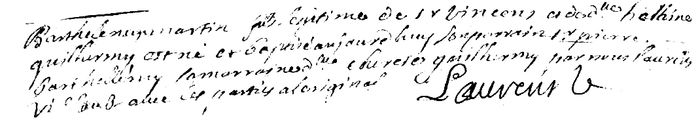 Barthelemy martin fils legitime de sr vincens et de dlle helhine
guilhermy est né et baptisé aujourd huy son parrain sr pierre
barthelemy sa marraine dlle therese guilhermy par nous laurens
vic avec les parties a loriginal
Laurens v